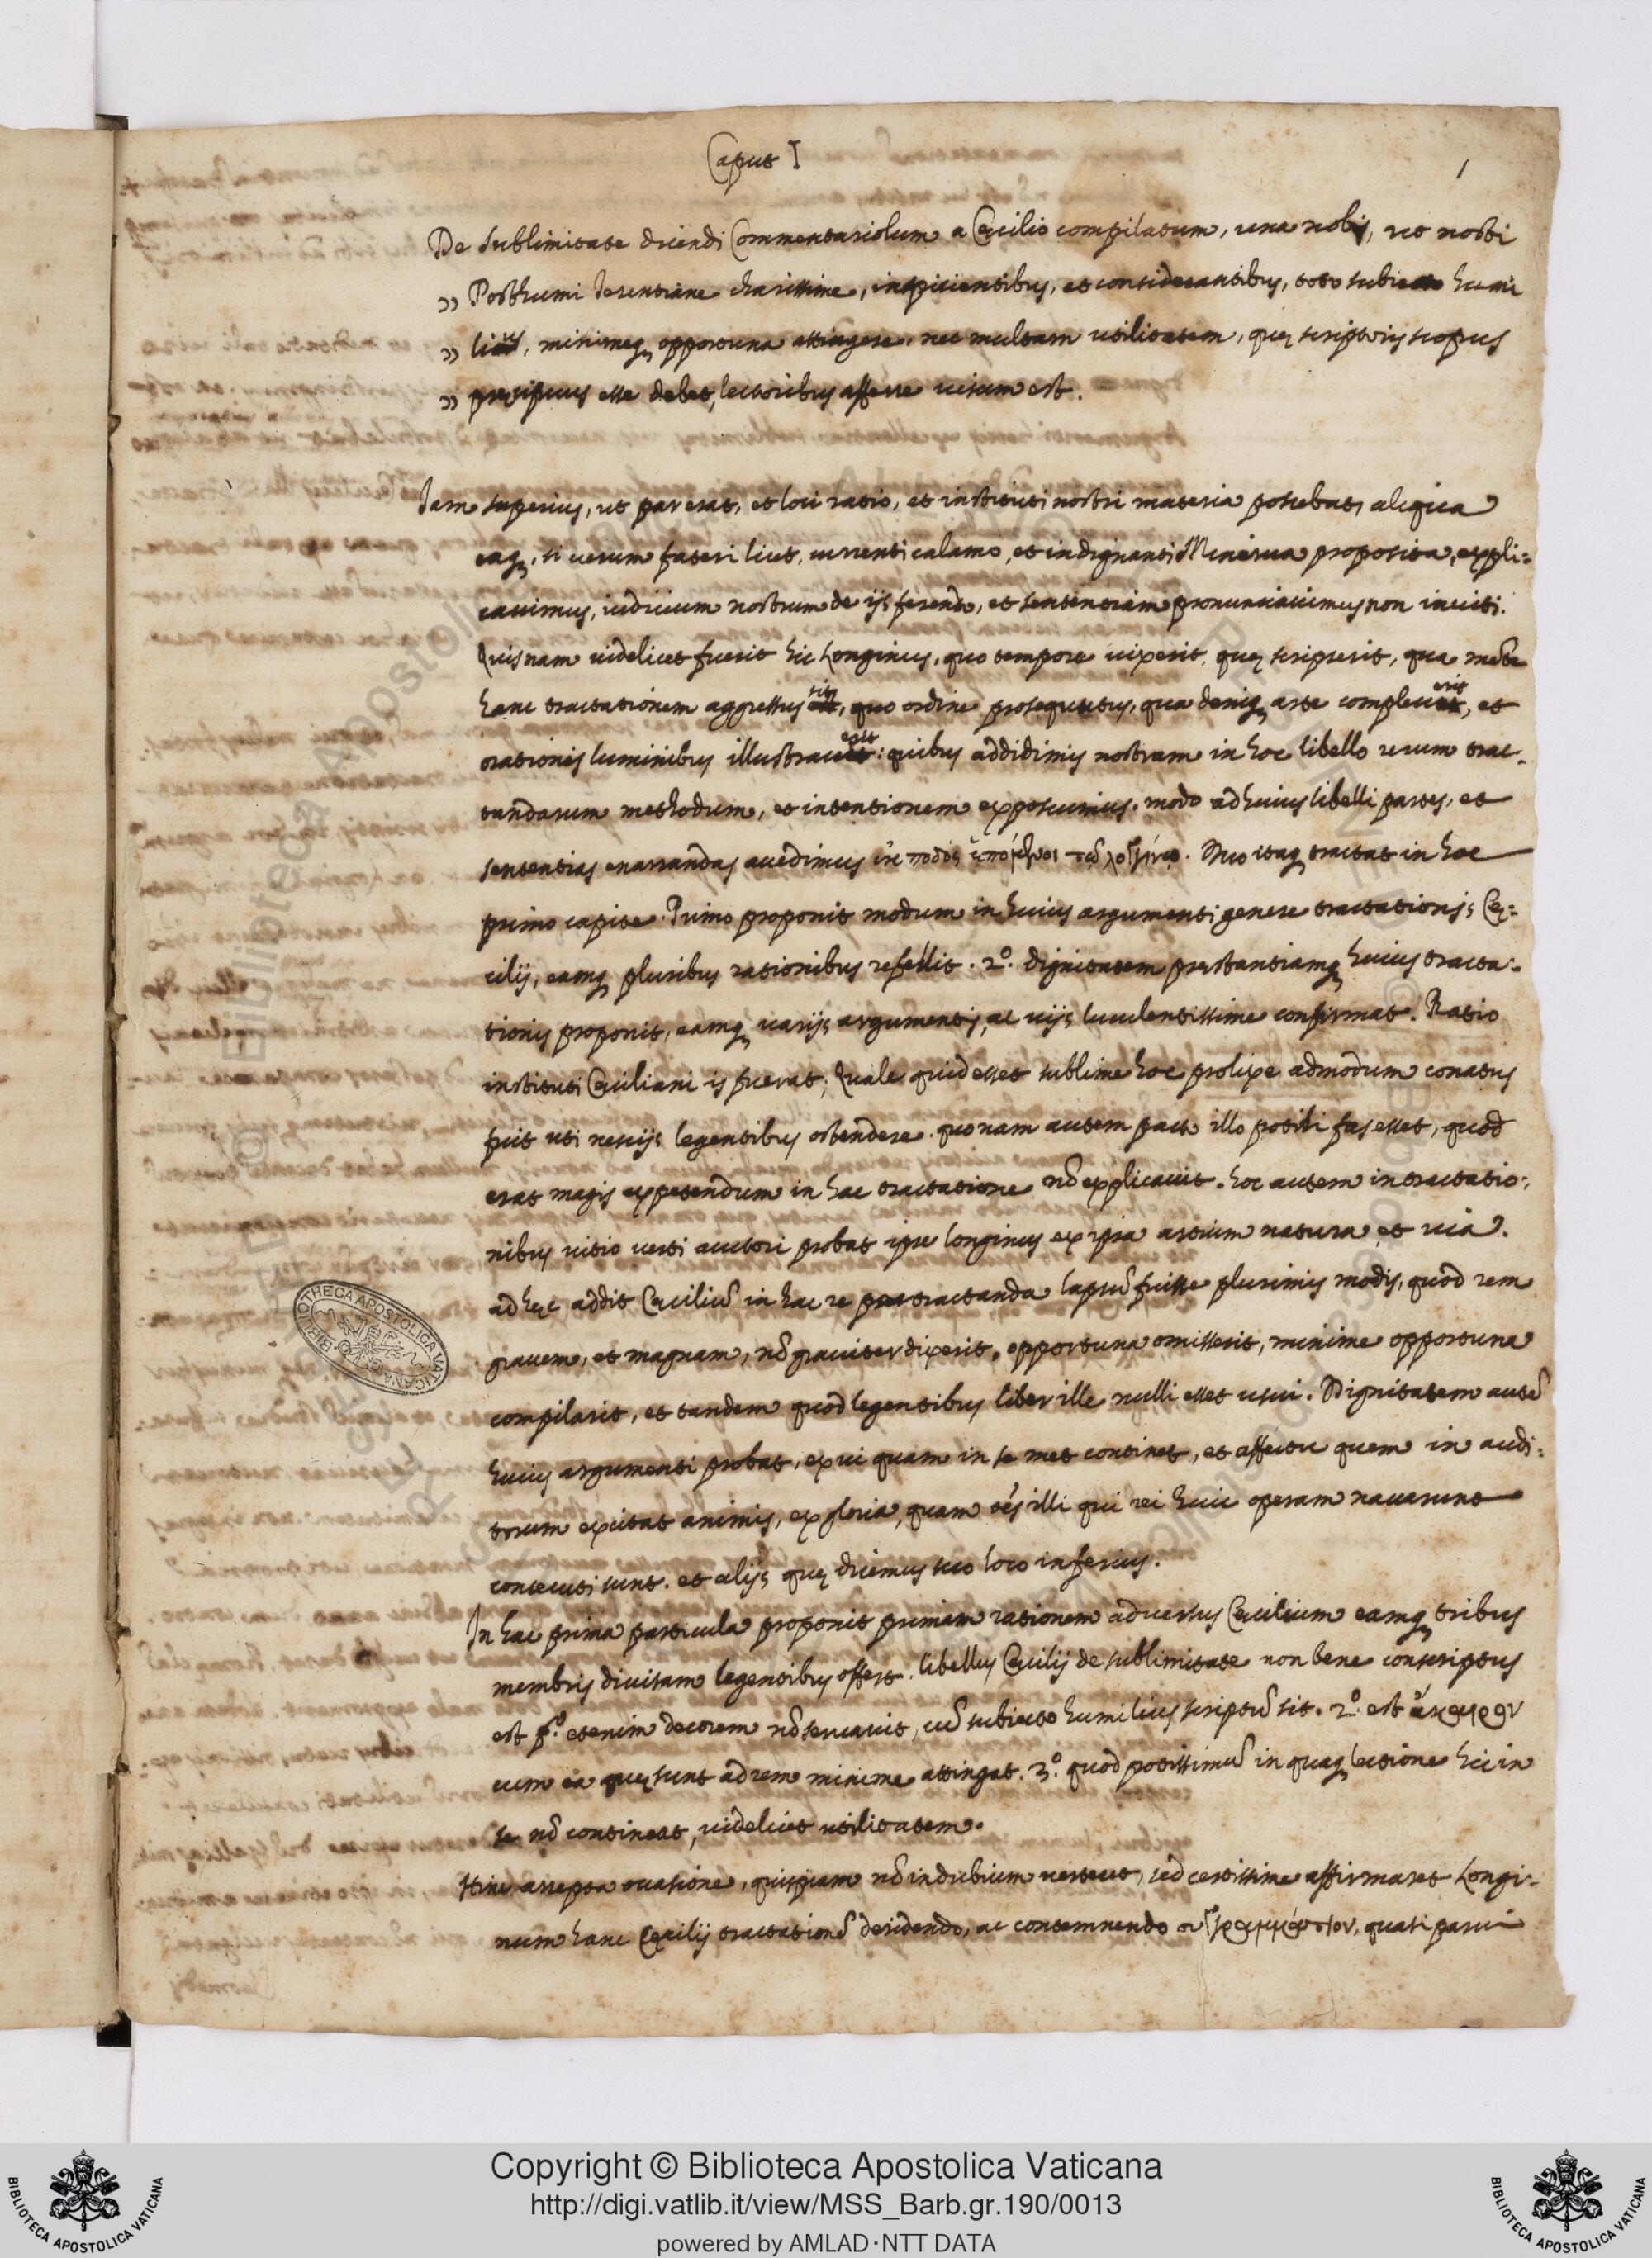 Caput I
1
De sublimitate dicendi Commentariolum a Cęcilio compilatum, una nobis, ut nosti
„ Posthumi Terentiane charissime, inspicientibus, et considerantibus, toto subiecto humi
„ lius, minimeq; opportuna attingere, nec multam utilitatem, quę scriptoris scopus
„ pręcipuus esse debet, lectoribus afferre uisum est.
Iam superius, ut par erat, et loci ratio, et instituti nostri materia poscebat, aliqua
eaq;, si uerum fateri licet, currenti calamo, et indignanti Minerua proposita, expli=
cauimus, iudicium nostrum de ijs ferendo, et sententiam pronunciauimus non inuiti.
Quisnam uidelicet fuerit hic Longinus, quo tempore uixerit, quę scripserit, qua mẽte
hanc tractationem aggressus sit, quo ordine prosequutus, qua deniq; arte compleuerit, et
orationis luminibus illustrauerit: quibus addidimus nostram in hoc libello rerum trac=
tandarum methodum, et intentionem exposuimus. modo ad huius libelli partes, et
sententias enarrandas accedimus ἐκ ποδὸς ἑπόμενοι τῷ λογγίνῳ. Duo itaq; tractat in hoc
primo capite. Primo proponit modum in huius argumenti genere tractationis Cę=
cilij, eamq; pluribus rationibus refellit. 2º. dignitatem pręstantiamq; huius tracta=
tionis proponit, eamq; varijs argumentis, ac uijs luculentissime confirmat. Ratio
instituti Cęciliani is fuerat; Quale quid esset sublime hoc prolixe admodum conatus
fuit uti nescijs legentibus ostendere. quonam autem pacto illo potiri fas esset, quod
erat magis expetendum in hac tractatione nõ explicauit. hoc autem in tractatio=
nibus uitio uerti auctori probat ipse longinus ex ipsa artium natura et uia.
ad hęc addit Cęciliũ in hac re pertractanda lapsũ fuisse plurimis modis, quod rem
grauem, et magnam, nõ grauiter dixerit, opportuna omisserit, minime opportuna
compilarit, et tandem quod legentibus liber ille nulli esset usui. Dignitatem autẽ
huius argumenti probat, ex ui quam in se met continet, et affectu quem in audi=
torum excitat animis, ex gloria, quam oẽs illi qui rei huic operam nauarunt
consecuti sunt. et alijs quę dicemus suo loco inferius.
In hac prima particula proponit primam rationem aduersus Cęcilium eamq; tribus
membris diuisam legentibus offert. libellus Cęcilij de sublimitate non bene conscriptus
est pº. etenim decorem nõ seruauit, cũ subiecto humilius scriptũ sit. 2º. est ἄκαιρον
cum ea quę sunt ad rem minime attingat. 3º. quod potissimũ in quaq; lectione hic in
se nõ contineat, uidelicet utilitatem.
Hinc arrepta occasione, quispiam nõ in dubium uerteret, sed certissime affirmaret Longi=
num hanc Cęcilij tractationẽ deridendo, ac contemnendo συγγραμμάτιον, quasi parui
BIBLIOTHECA APOSTOLICA VATICANA
Copyright © Biblioteca Apostolica Vaticana
http://digi.vatlib.it/view/MSS_Barb.gr.190/0013
powered by AMLAD·NTT DATA
BIBLIOTECA APOSTOLICA VATICANA
BIBLIOTECA APOSTOLICA VATICANA